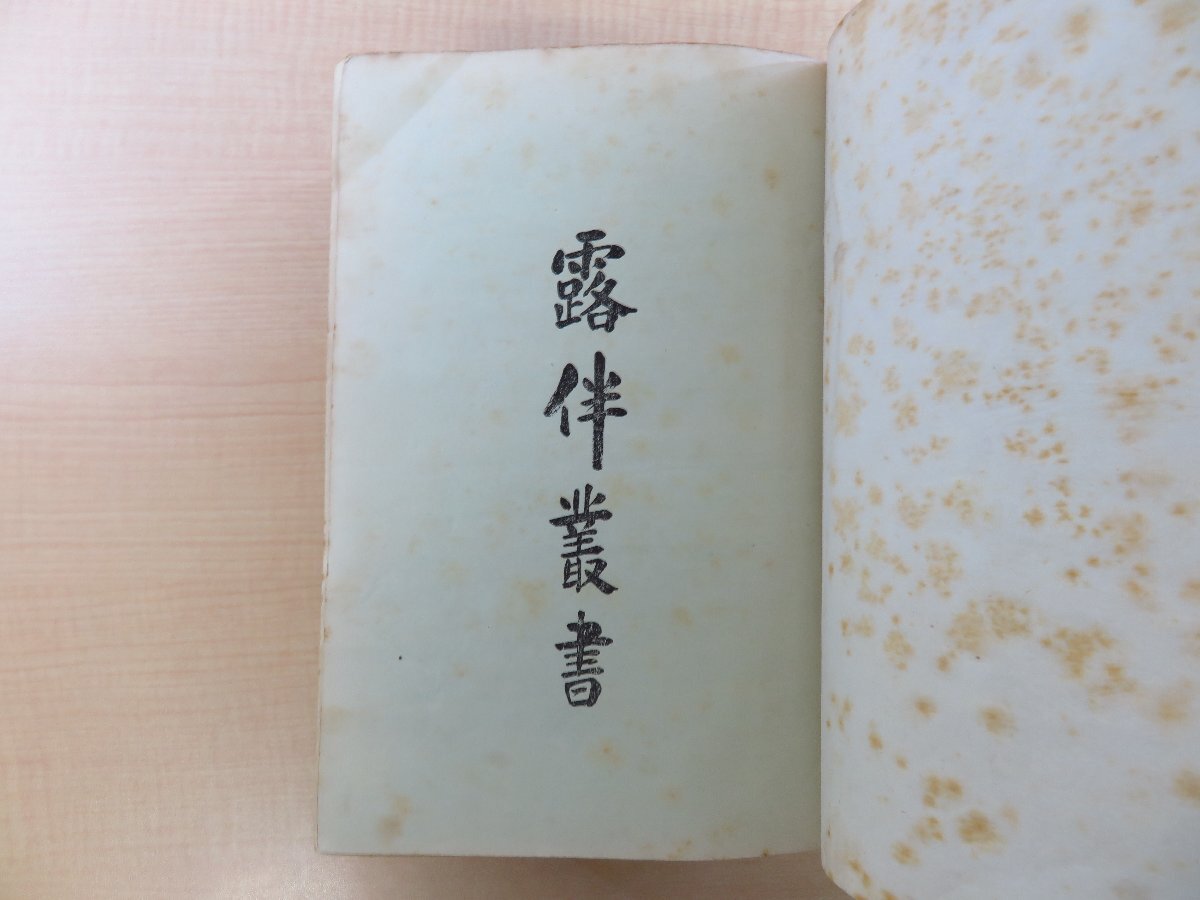 露伴叢書